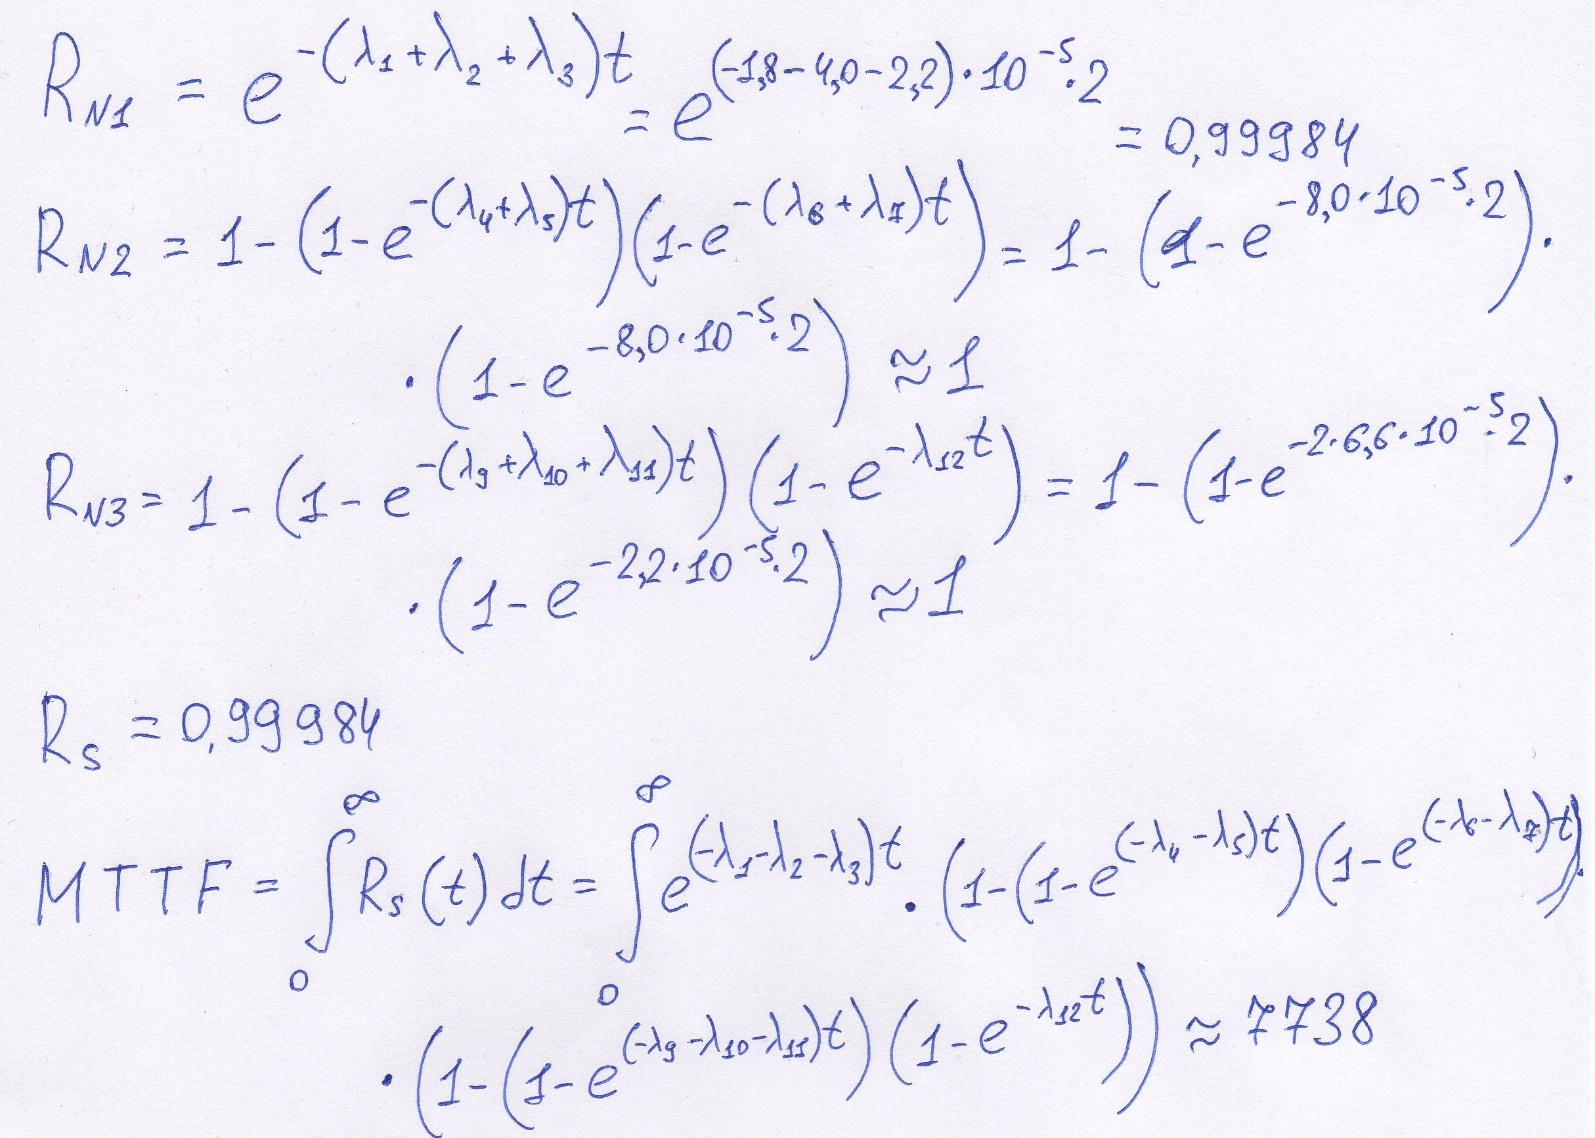 R_N1 = e^{-(λ₁+λ₂+λ₃)t} = e^{(-1,8-4,0-2,2)·10^{-5}·2} = 0,99984
R_N2 = 1-(1-e^{-(λ₄+λ₅)t})(1-e^{-(λ₆+λ₇)t}) = 1-(1-e^{-8,0·10^{-5}·2})·
·(1-e^{-8,0·10^{-5}·2}) ≈ 1
R_N3 = 1-(1-e^{-(λ₉+λ₁₀+λ₁₁)t})(1-e^{-λ₁₂t}) = 1-(1-e^{-2·6,6·10^{-5}·2})·
·(1-e^{-2,2·10^{-5}·2}) ≈ 1
R_S = 0,99984
MTTF = ∫₀^∞ R_s(t)dt = ∫₀^∞ e^{(-λ₁-λ₂-λ₃)t}·(1-(1-e^{(-λ₄-λ₅)t})(1-e^{(-λ₆-λ₇)t})·
·(1-(1-e^{(-λ₉-λ₁₀-λ₁₁)t})(1-e^{-λ₁₂t})) ≈ 7738